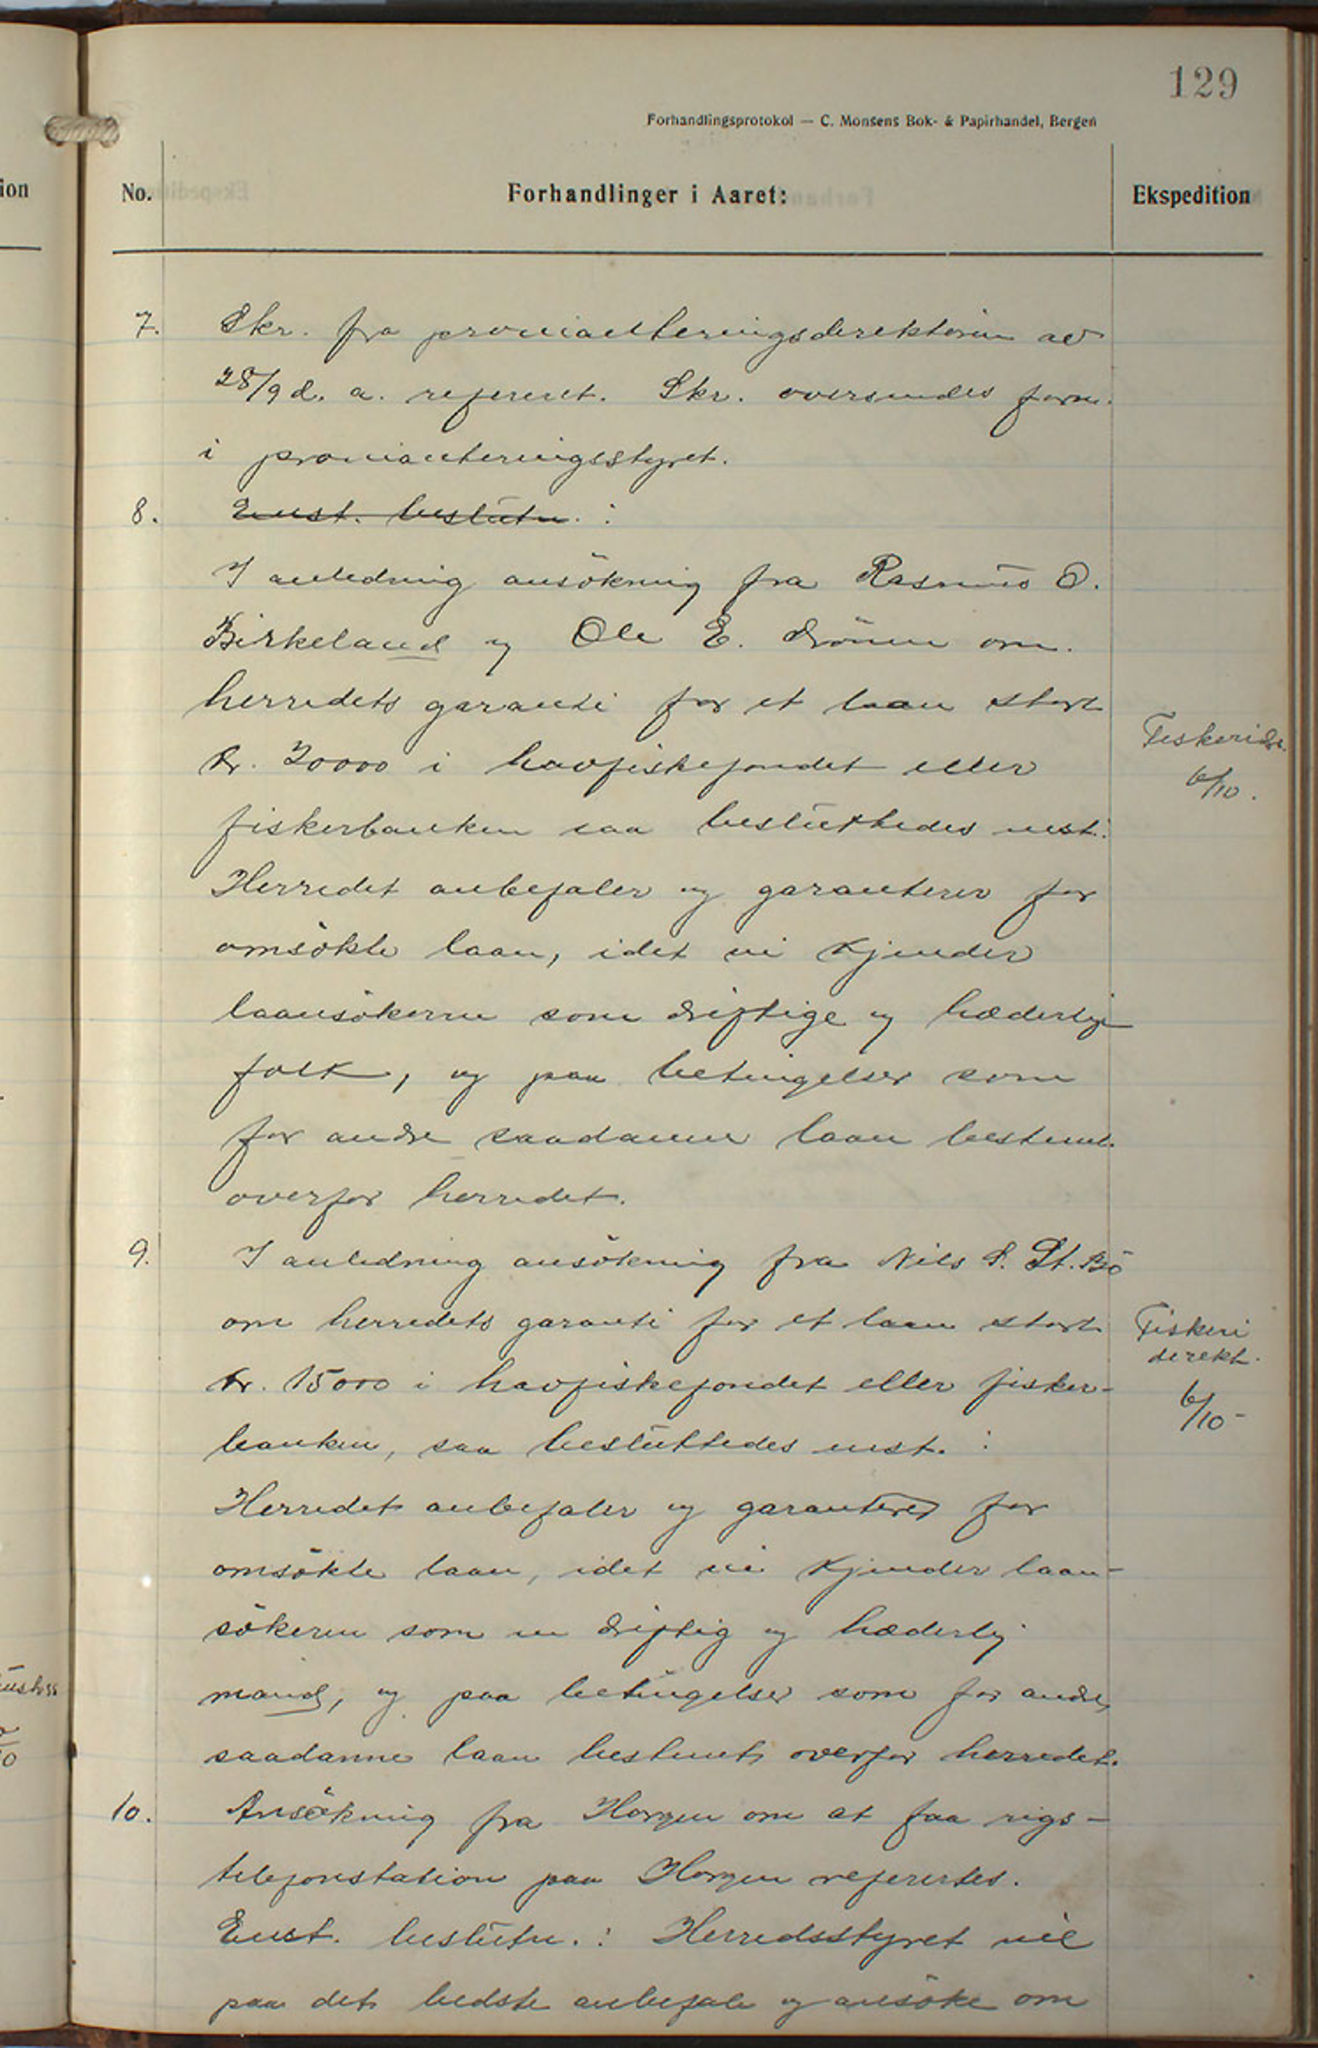 129
Forhandlingsprotokol — C. Monsens Bok- & Papirhandel, Bergen
ion
No.
Forhandlinger i Aaret:
Ekspedition
7. Skr. fra provianteringsdirektören av
28/9 d. a. referert. Skr. oversendes form.
i provianteringsstyret.
8. Enst. beslutn. :
I anledning ansökning fra Rasmus O.
Birkeland og Ole E. Drönen om
herredets garanti for et laan stort
kr. 20000 i havfiskefondet eller
fiskerbanken saa besluttedes enst.:
Herredet anbefaler og garanterer for
omsökte laan, idet vi kjender
laansökerne som driftige og hæderlige
folk, og paa betingelser som
for andre saadanne laan bestemt
overfor herredet.
Fiskeridr.
6/10.
9. I anledning ansökning fra Nils S. St. Bö
om herredets garanti for et laan stort
kr. 15000 i havfiskefondet eller fisker-
banken, saa besluttedes enst. :
Herredet anbefaler og garanterer for
omsökte laan, idet vi kjender laan-
sökeren som en driftig og hæderlig
mand, og paa betingelser som for andre
saadanne laan bestemt overfor herredet.
Fiskeri
direkt.
6/10-
10. Ansökning fra Horgen om at faa rigs-
telefonstation paa Horgen refertes.
Enst. beslutn. : Herredsstyret vil
paa det bedste anbefale og ansöke om